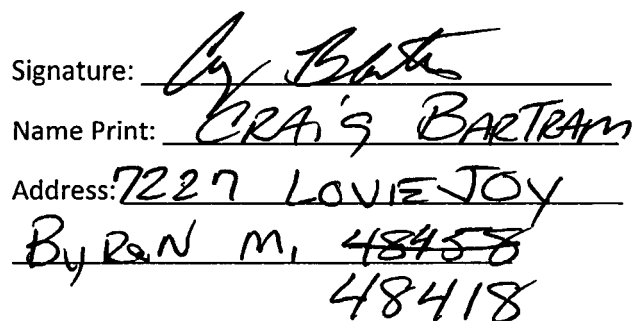 Signature:
Name Print: CRAIG BARTRAM
Address: 7227 LOVIEJOY
ByRON MI 48458
48418